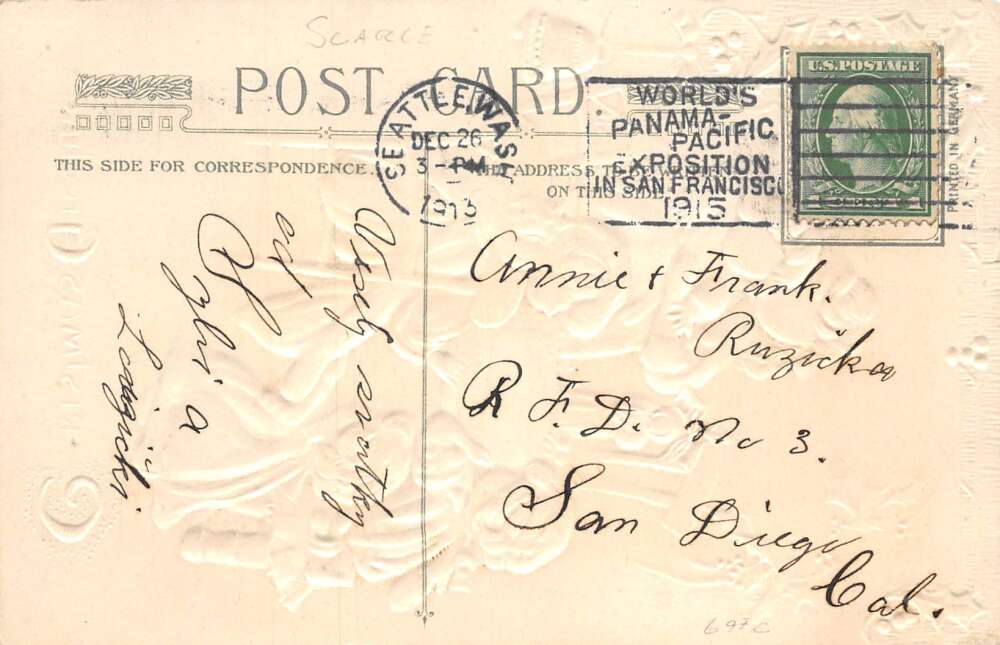 SCARCE
POST CARD
THIS SIDE FOR CORRESPONDENCE.
THE ADDRESS TO
ON THIS SIDE
SEATTLE, WASH.
DEC 26
3 - PM
1913
WORLD'S
PANAMA-
PACIFIC
EXPOSITION
IN SAN FRANCISCO
1915
U.S. POSTAGE
PRINTED IN GERMANY
od
a
Annie & Frank.
Ruzicka
R. F. D. No 3.
San Diego
Cal.